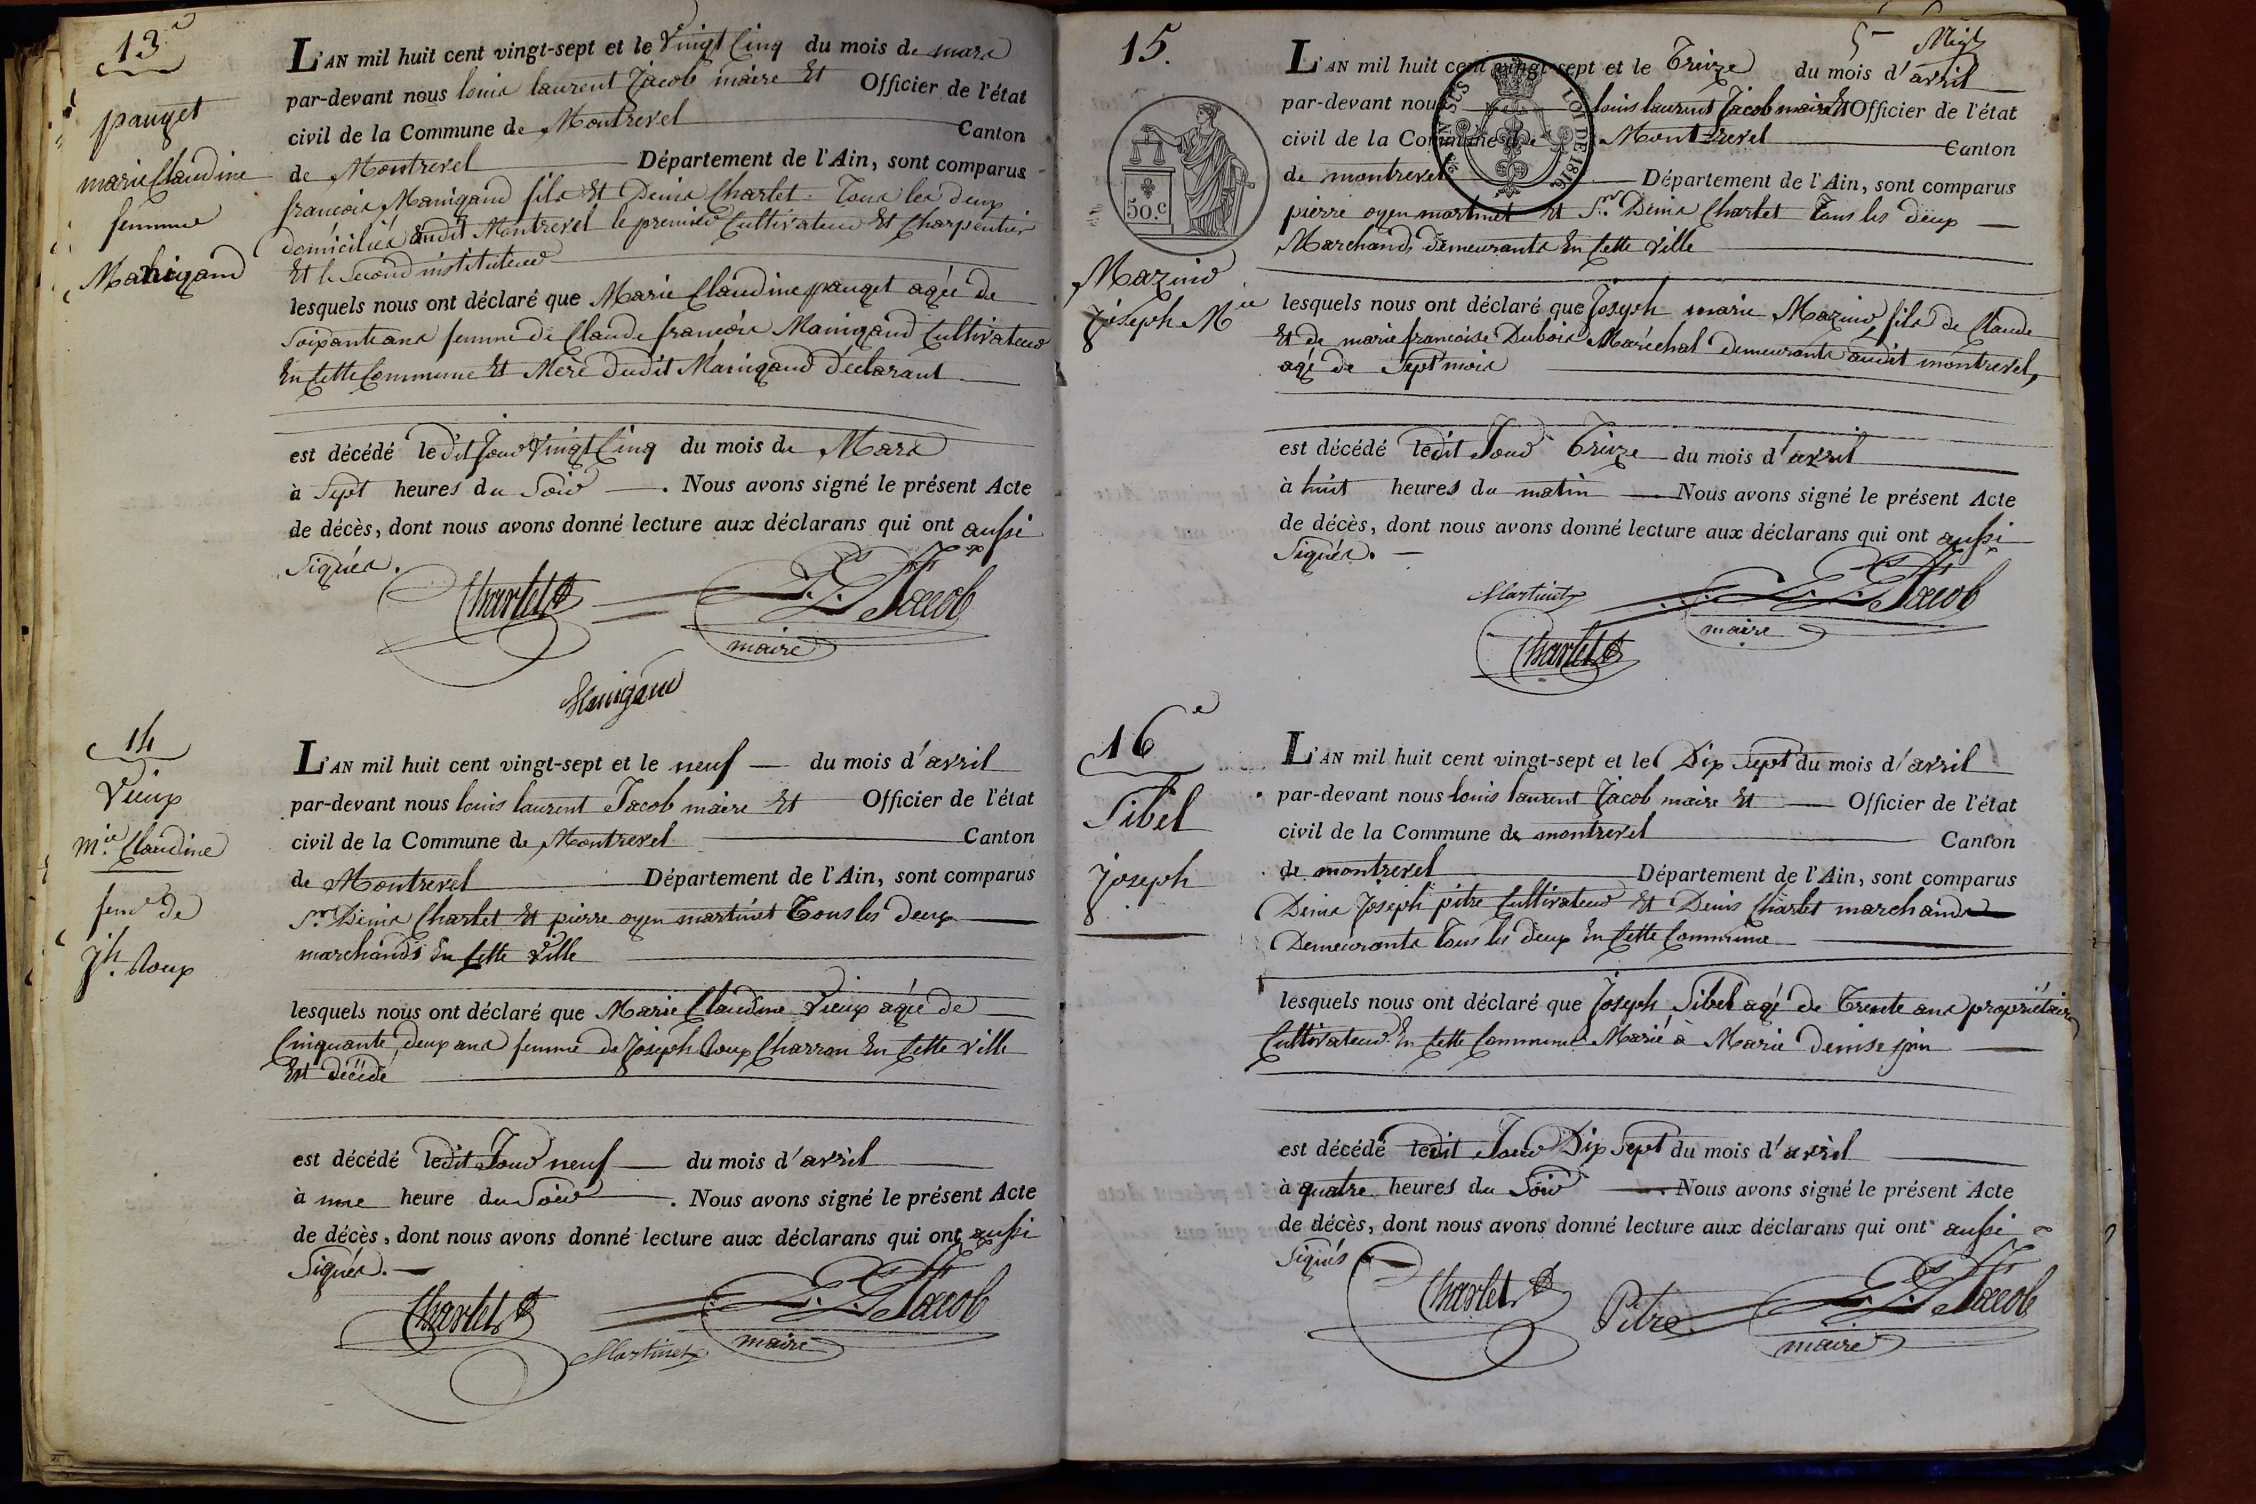 13e
pauget
marie Claudine
femme
Manigand
L'AN mil huit cent vingt-sept et le vingt Cinq du mois de mars
par-devant nous louis laurent Jacob maire Et Officier de l'état
civil de la Commune de Montrevel Canton
de Montrevel Département de l'Ain, sont comparus
françois Manigand fils Et Denis Charlet Tous les deux
domiciliés audit Montrevel le premier Cultivateur Et Charpentier
Et le Second instituteur
lesquels nous ont déclaré que Marie Claudine pauget agée de
Soixante ans femme de Claude françois Manigand Cultivateur
En Cette Commune Et Mère dudit Manigand déclarant
est décédé le dit Jour vingt Cinq du mois de Mars
à Sept heures du Soir. Nous avons signé le présent Acte
de décès, dont nous avons donné lecture aux déclarans qui ont aussi
Signés.
Charlet L. L. Jacob
maire
Manigand
14
Vieux
m.ie Claudine
fem.e de
J.h Loup
L'AN mil huit cent vingt-sept et le neuf du mois d'avril
par-devant nous louis laurent Jacob maire Et Officier de l'état
civil de la Commune de Montrevel Canton
de Montrevel Département de l'Ain, sont comparus
S.r Denis Charlet Et pierre oyen martinet Tous les deux
marchands En Cette Ville
lesquels nous ont déclaré que Marie Claudine Vieux agée de
Cinquante deux ans femme de Joseph Loup Charron En Cette ville
Est décédé
est décédé ledit Jour neuf du mois d'avril
à une heure du Soir. Nous avons signé le présent Acte
de décès, dont nous avons donné lecture aux déclarans qui ont aussi
Signés.
Charlet L. L. Jacob
Martinet maire
15.
50.c
Mazuir
Joseph M.ie
LOI DE 1816
L'AN mil huit cent vingt-sept et le Treize du mois d'avril
par-devant nous louis laurent Jacob maire Et Officier de l'état
civil de la Commune de Montrevel Canton
de montrevel Département de l'Ain, sont comparus
pierre oyen martinet Et S.r Denis Charlet Tous les deux
Marchands demeurants En Cette Ville
lesquels nous ont déclaré que Joseph marie Mazuir fils de Claude
Et de marie françoise Dubois Maréchal demeurants audit montrevel,
agé de Sept mois
est décédé ledit Jour Treize du mois d'avril
à huit heures du matin Nous avons signé le présent Acte
de décès, dont nous avons donné lecture aux déclarans qui ont aussi
Signés.
Martinet L. L. Jacob
maire
Charlet
16e
Sibel
Joseph
L'AN mil huit cent vingt-sept et le Dix Sept du mois d'avril
par-devant nous louis laurent Jacob maire Et Officier de l'état
civil de la Commune de montrevel Canton
de montrevel Département de l'Ain, sont comparus
Denis Joseph pitre Cultivateur Et Denis Charlet marchands
Demeurants Tous les deux En Cette Commune
lesquels nous ont déclaré que Joseph Sibel agé de Trente ans propriétaire
Cultivateur En Cette Commune Marié à Marie denise
est décédé ledit Jour Dix Sept du mois d'avril
à quatre heures du Soir. Nous avons signé le présent Acte
de décès, dont nous avons donné lecture aux déclarans qui ont aussi
Signés
Charlet Pitre L. L. Jacob
maire